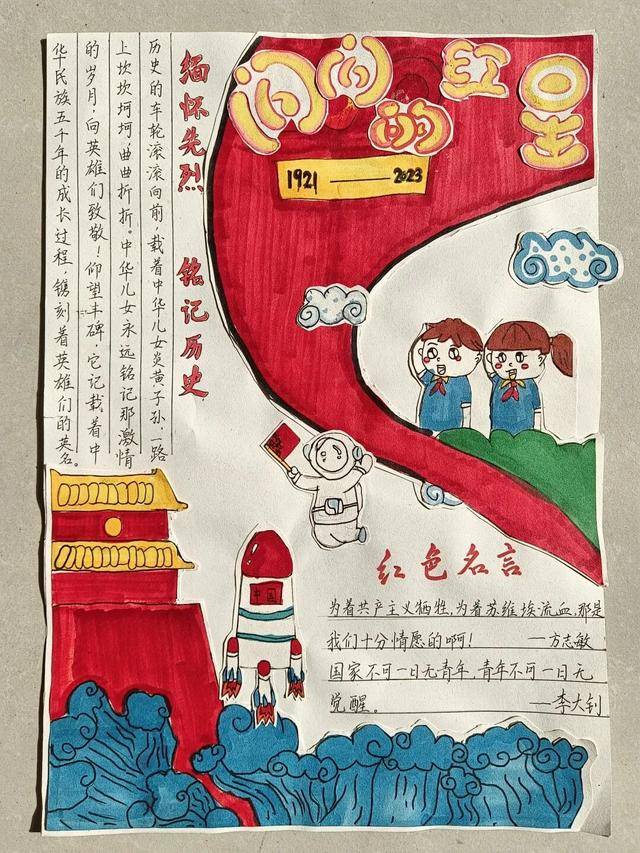 闪闪的红星
1921——2023
缅怀先烈 铭记历史
历史的车轮滚滚向前，载着中华儿女炎黄子孙、一路
上坎坎坷坷，曲曲折折。中华儿女永远铭记那激情
的岁月，向英雄们致敬！仰望丰碑，它记载着中
华民族五千年的成长过程，镌刻着英雄们的英名。
中国
红色名言
为着共产主义牺牲，为着苏维埃流血，那是
我们十分情愿的啊！ —方志敏
国家不可一日无青年，青年不可一日无
觉醒。 —李大钊